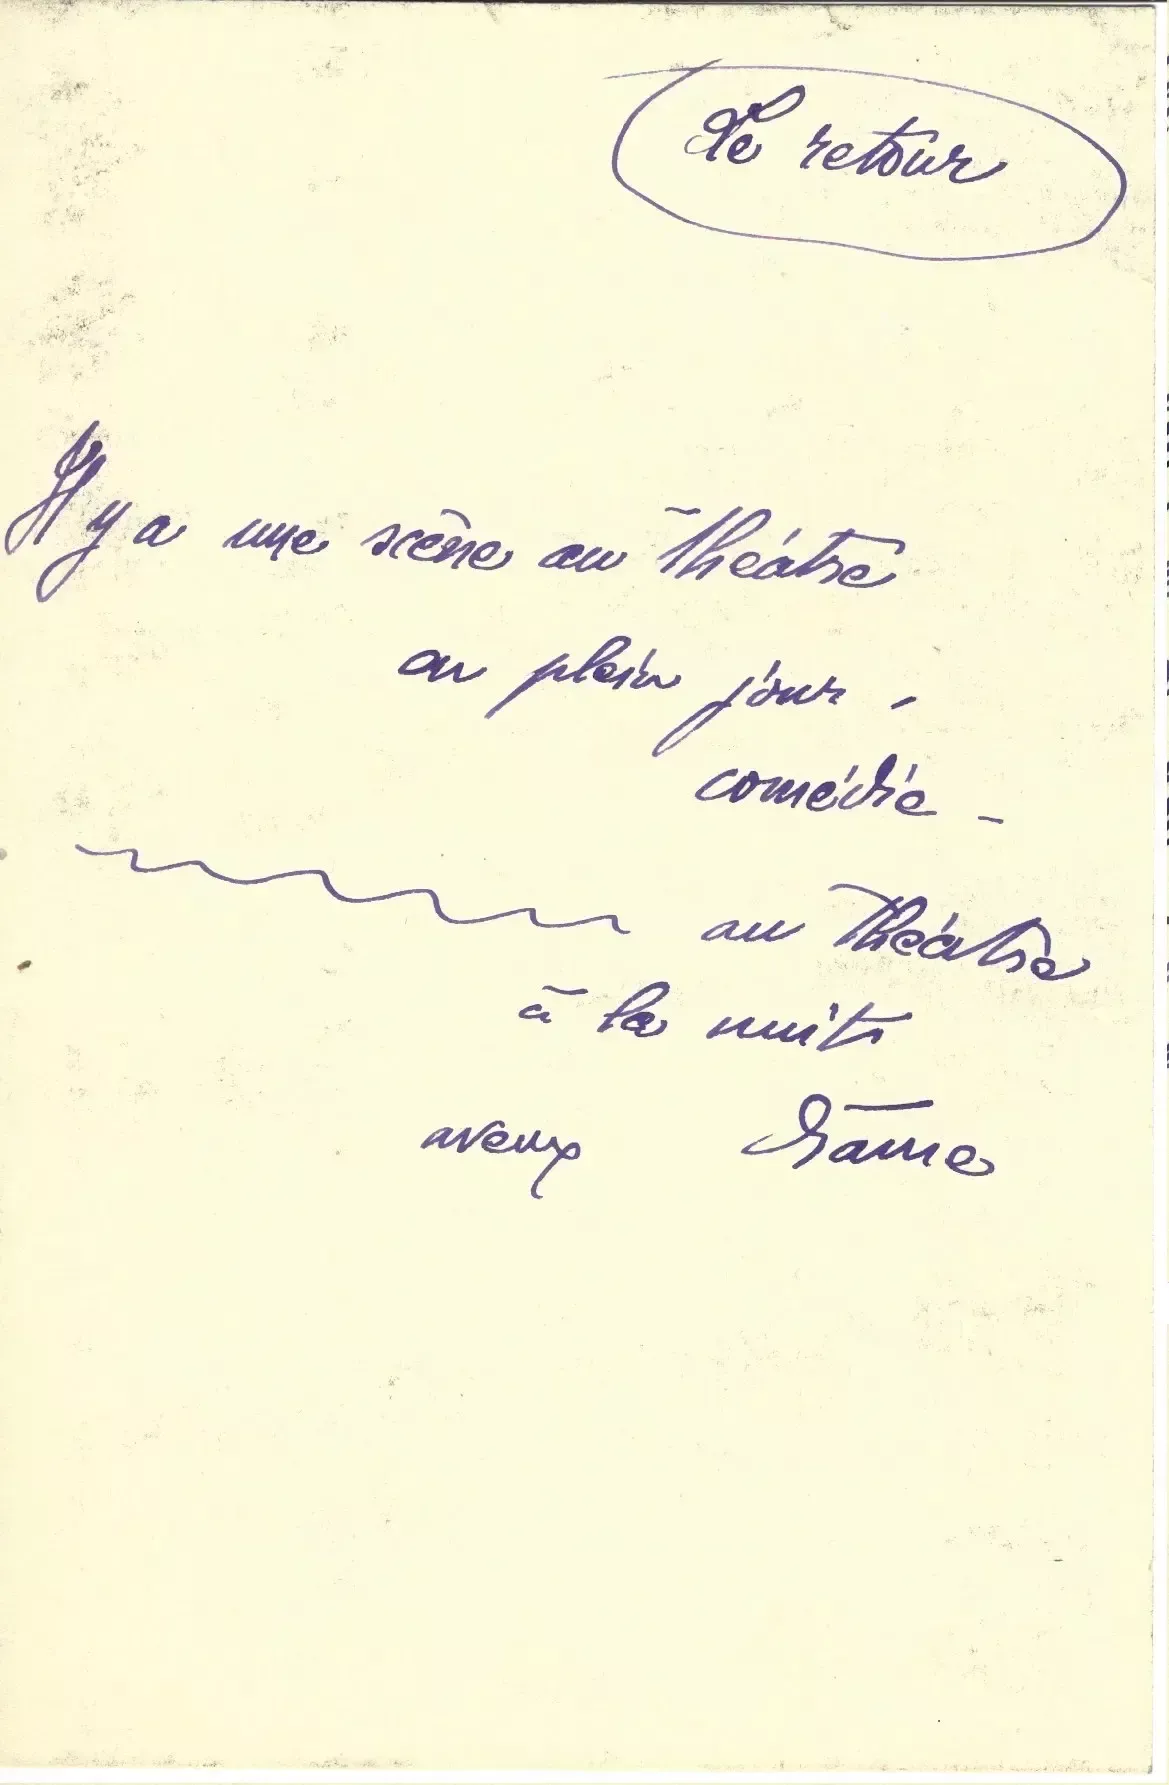 Le retour
Il y a une scène au théâtre
en plein jour.
comédie -
au théâtre
à la nuit
aveux drame